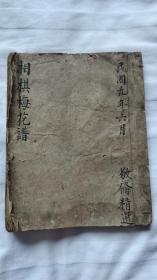 民國九年六月
敬脩精選
相棋梅花譜